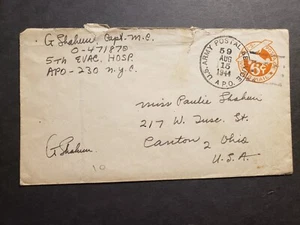 G Shaheen, Capt. M.C.
O-471875
5-th EVAC. HOSP.
APO-230 N.Y.C.
U.S. ARMY POSTAL
59
AUG
15
1944
A.P.O.
Miss Paulie Shaheen
217 W. Tusc. St.
Canton 2 Ohio
U.S.A.
G Shaheen